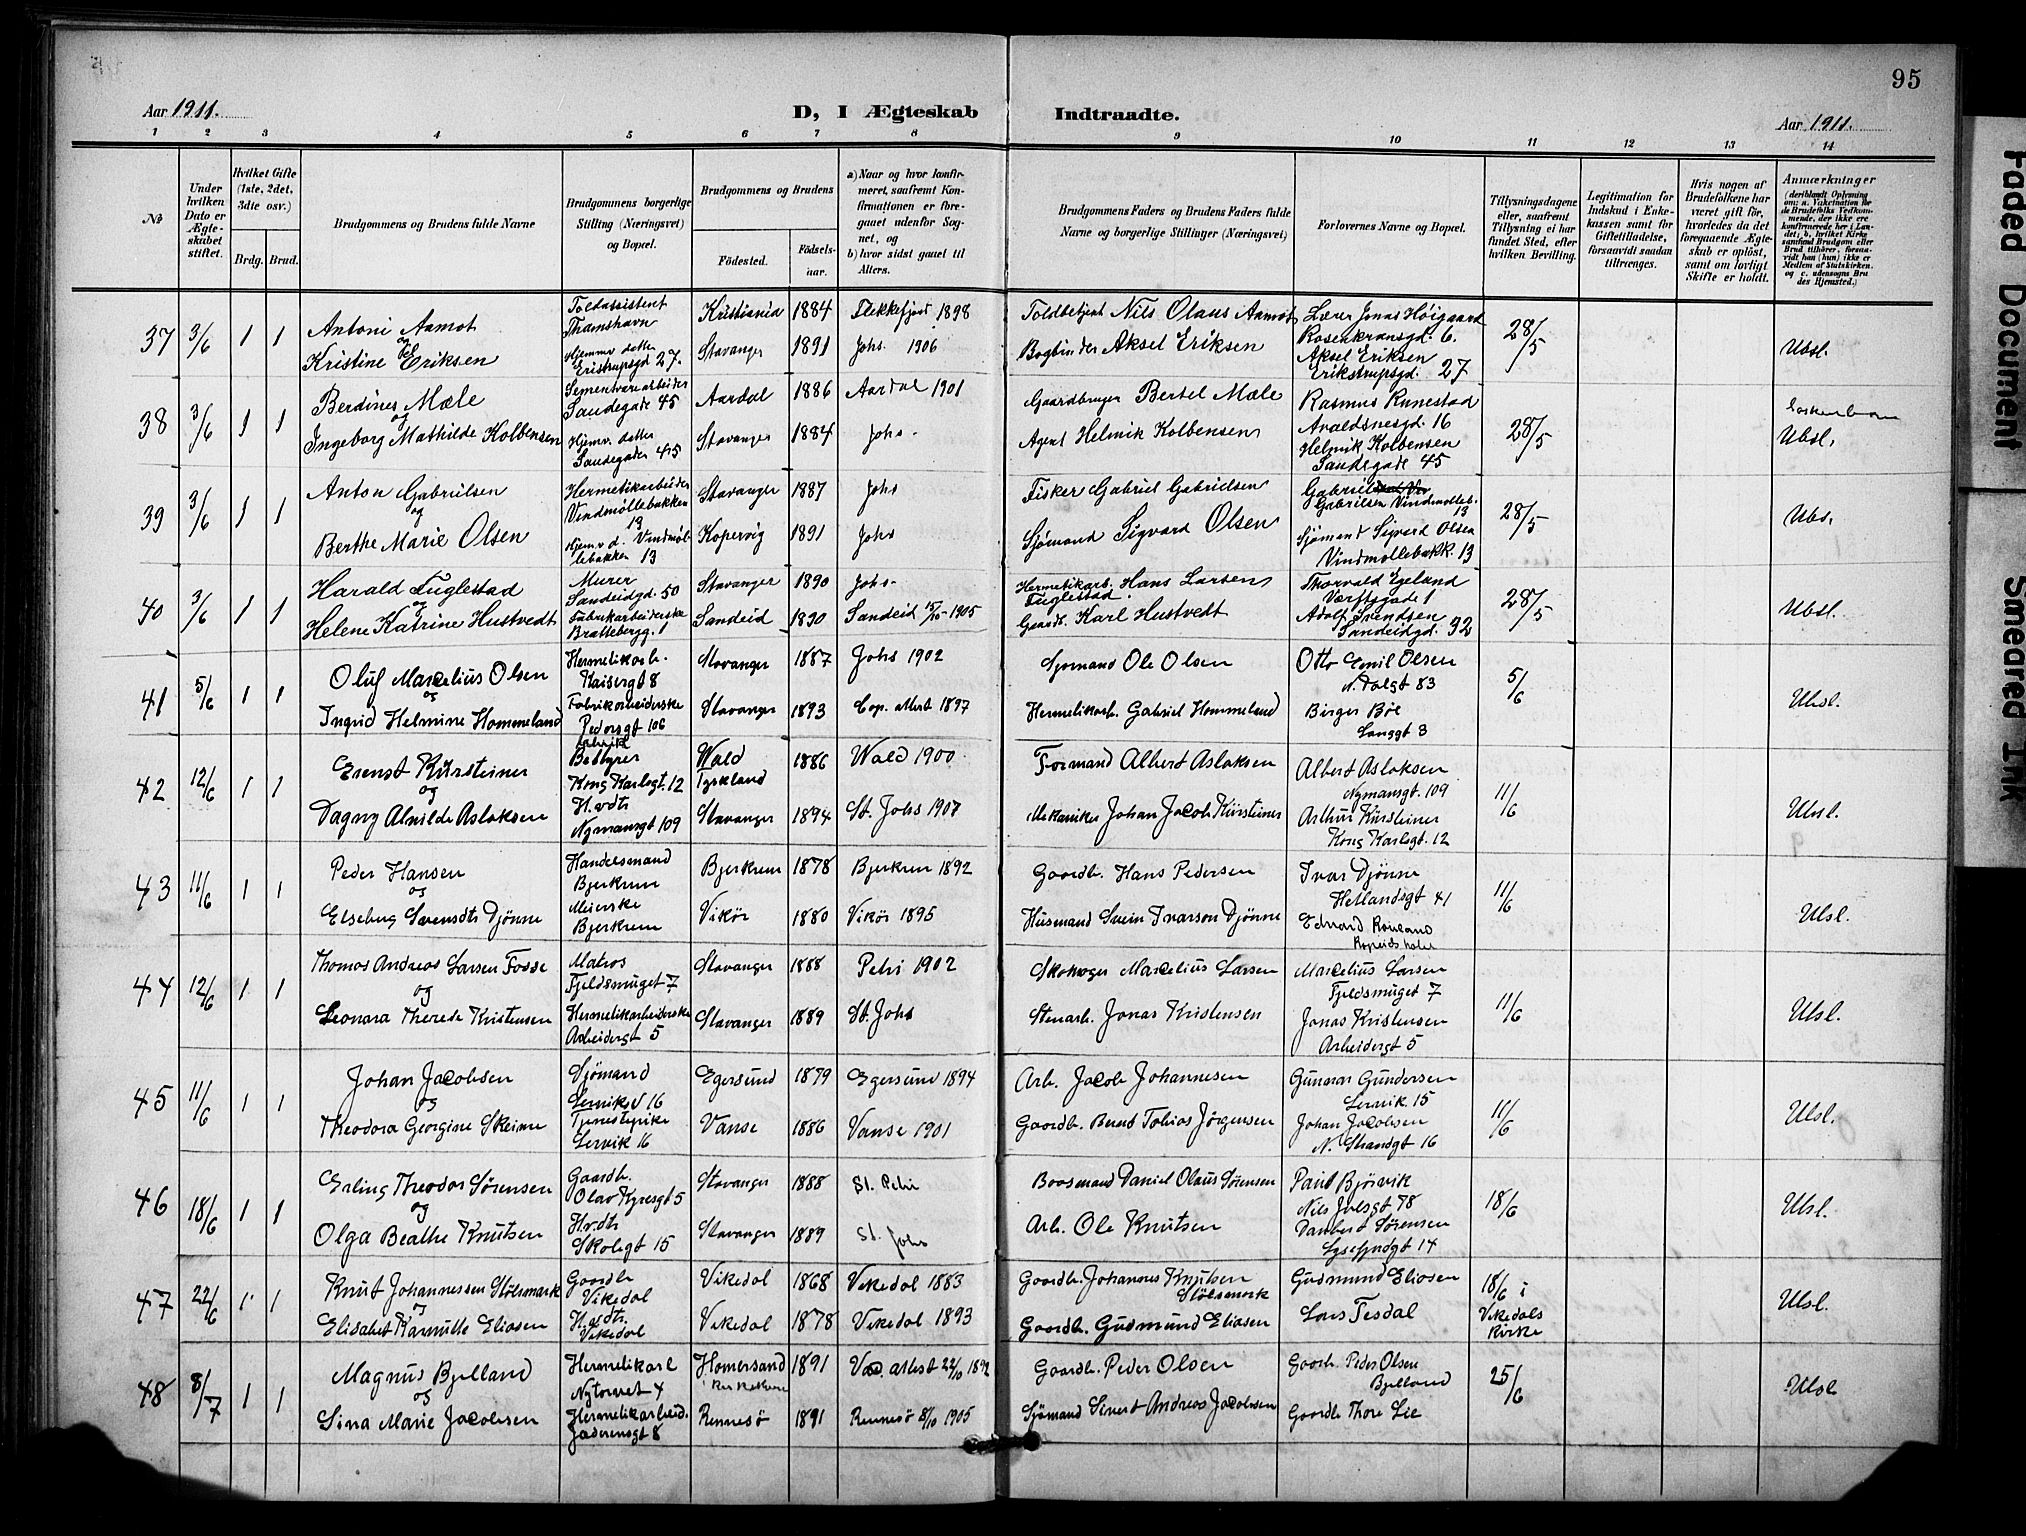 95
Aar 1911.
D, I Ægteskab Indtraadte.
Aar 1911.
1 2 3 4 5 6 7 8 9 10 11 12 13 14
No
Under hvilken Dato er Ægteskabet stiftet.
Hvilket Gifte (1ste, 2det, 3dte osv.)
Brdg. Brud.
Brudgommens og Brudens fulde Navne
Brudgommens borgerlige Stilling (Næringsvei) og Bopæl.
Brudgommens og Brudens
Fødested.
Fødselsaar.
a) Naar og hvor konfirmeret, saafremt Konfirmationen er foregaaet udenfor Sognet, og
b) hvor sidst gaaet til Alters.
Brudgommens Faders og Brudens Faders fulde Navne og borgerlige Stillinger (Næringsvei)
Forlovernes Navne og Bopæl.
Tillysningsdagene eller, saafremt Tillysning ei har fundet Sted, efter hvilken Bevilling.
Legitimation for Indskud i Enkekassen samt for Giftetilladelse, forsaavidt saadan tiltrænges.
Hvis nogen af Brudefolkene har været gift før, hvorledes da det foregaaende Ægteskab er opløst, samt om lovligt Skifte er holdt.
Anmærkninger
(deriblandt Oplysning om: a. Vakcination for de Brudefolks Vedkommende, der ikke ere konfirmerede her i Landet; b. hvilket Kirkesamfund Brudgom eller Brud tilhører, forsaavidt han (hun) ikke er Medlem af Statskirken. og c. udensogns Brudes Hjemsted.)
37 3/6 1 1 Antoni Aamot Toldassistent Thamshavn Kristiania 1884 Flekkefjord 1898 Toldbetjent Nils Olaus Aamot Lærer Jonas Høigaard Rosenkransgd. 6. 28/5 Ubsl.
og
Kristine Eriksen Hjemmv. datter Erikstrupsgd 27. Stavanger 1891 Johs. 1906 Bogbinder Aksel Eriksen Aksel Eriksen Erikstrupsgd. 27
38 3/6 1 1 Berdines Mæle Sementvarearbeider Sandegade 45 Aardal 1886 Aardal 1901 Gaardbruger Bertel Mæle Rasmus Runestad Avaldsnesgd. 16 28/5 Ubsl.
og
Ingeborg Mathilde Kolbensen Hjemv. datter Sandegade 45 Stavanger 1884 Johs. Agent Helmik Kolbensen Helmik Kolbensen Sandegade 45
39 3/6 1 1 Anton Gabrielsen Hermetikarbeider Vindmøllebakken 13 Stavanger 1887 Johs Fisker Gabriel Gabrielsen Gabriel Gabrielsen Vindmølleb. 13 28/5 Ubs.
og
Berthe Marie Olsen Hjemv. d. Vindmøllebakken 13 Kopervig 1891 Johs Sjømand Sigvard Olsen Sjømand Sigvard Olsen Vindmøllebakk. 13
40 3/6 1 1 Harald Fuglestad Murer Sandeidgd. 50 Stavanger 1890 Johs. Hermetikarb. Hans Larsen Fuglestad. Thorvald Egeland Værftsgade 1 28/5 Ubsl.
og
Helene Katrine Hustvedt Fabrikarbeiderske Brattebergg. 1 Sandeid 1890 Sandeid 15/10 - 1905 Gaardb. Karl Hustvedt Adolf Svendsen Sandeidgd. 32
41 5/6 1 1 Oluf Marcelius Olsen Hermetikarb. Kaisergt 8 Stavanger 1887 Johs 1902 Sjømand Ole Olsen Otto Emil Olsen N. Dalgt 83 5/6 Ubsl.
og
Ingrid Helmine Hommeland Fabrikarbeiderske Pedersgt 106 Stavanger 1893 Cop. attest 1897 Hermetikarb. Gabriel Hommeland Birger Bøe Langgt 3
42 12/6 1 1 Ernst Kürsteiner Fabrik Bestyrer Kong Karlsgt. 12 Wald Tyskland 1886 Wald 1900 Formand Albert Aslaksen Albert Aslaksen Nymansgt. 109 11/6 Ubsl.
og
Dagny Alvilde Aslaksen H.vdtr Nymansgt 109 Stavanger 1894 St. Johs 1907 Mekaniker Johan Jacob Kürsteiner Arthur Kürsteiner Kong Karlsgt. 12
43 11/6 1 1 Peder Hansen Handelsmand Bjerkrem Bjerkrem 1878 Bjerkrem 1892 Gaardb. Hans Pedersen Ivar Djønne Hetlandsgt 41 11/6 Ubsl.
og
Elseberg Svensdtr Djønne Meierske Bjerkrem Vikør 1880 Vikør 1895 Husmand Svein Ivarson Djønne Edvard
44 12/6 1 1 Thomas Andreas Larsen Fosse Matros Fjeldsmuget 7 Stavanger 1888 Petri 1902 Skomager Marcelius Larsen Marcelius Larsen Fjeldsmuget 7 11/6 Ubsl.
og
Leonara Therese Kristensen Hermetikarbeiderske Arbeidergt 5 Stavanger 1889 St. Johs Stenarb. Jonas Kristensen Jonas Kristensen Arbeidergt 5
45 11/6 1 1 Johan Jacobsen Sjømand Lervik 16 Egersund 1879 Egersund 1894 Arb. Jacob Johannesen Gunnar Gundersen Lervik. 15 11/6 Ubsl.
og
Theodora Georgine Skeime Tjenestepike Lervik 16 Vanse 1886 Vanse 1901 Gaardb. Bernt Tobias Jørgensen Johan Jacobsen N. Strandgt 16
46 18/6 1 1 Erling Theodor Sørensen Gaardb. Olav Kyresgt 5 Stavanger 1888 St. Petri Baasmand Daniel Olaus Sørensen Paul Bjørvik Nils Juelsgt 78 18/6 Ubsl.
og
Olga Beathe Knutsen H.vdtr Skolegt 15 Stavanger 1889 St. Johs Arb. Ole Knutsen Danbert Sørensen Lysefjordgt 14
47 22/6 1 1 Knut Johannessen Stølsmark Gaardb Vikedal Vikedal 1868 Vikedal 1883 Gaardb. Johannes Knutsen Stølsmark Gudmund Eliasen 18/6 i Vikedals Kirke Ubsl.
og
Elisabet Eliasen H.vdtr. Vikedal Vikedal 1878 Vikedal 1893 Gaardb. Gudmund Eliasen Lars Tesdal
48 8/7 1 1 Magnus Bjelland Hermetikarb Nytorvet 4 1891 Vac. attest 22/10 1892 Gaardb. Peder Olsen Gaardb. Peder Olsen Bjelland 25/6 Ubsl
og
Sina Marie Jacobsen Hermetikarbeid. Jæderensgt 8 Rennesø 1891 Rennesø 8/10 1905 Sjømand Sivert Andreas Jacobsen Gaardb Thore Lie
Faded Document
Smeared Ink